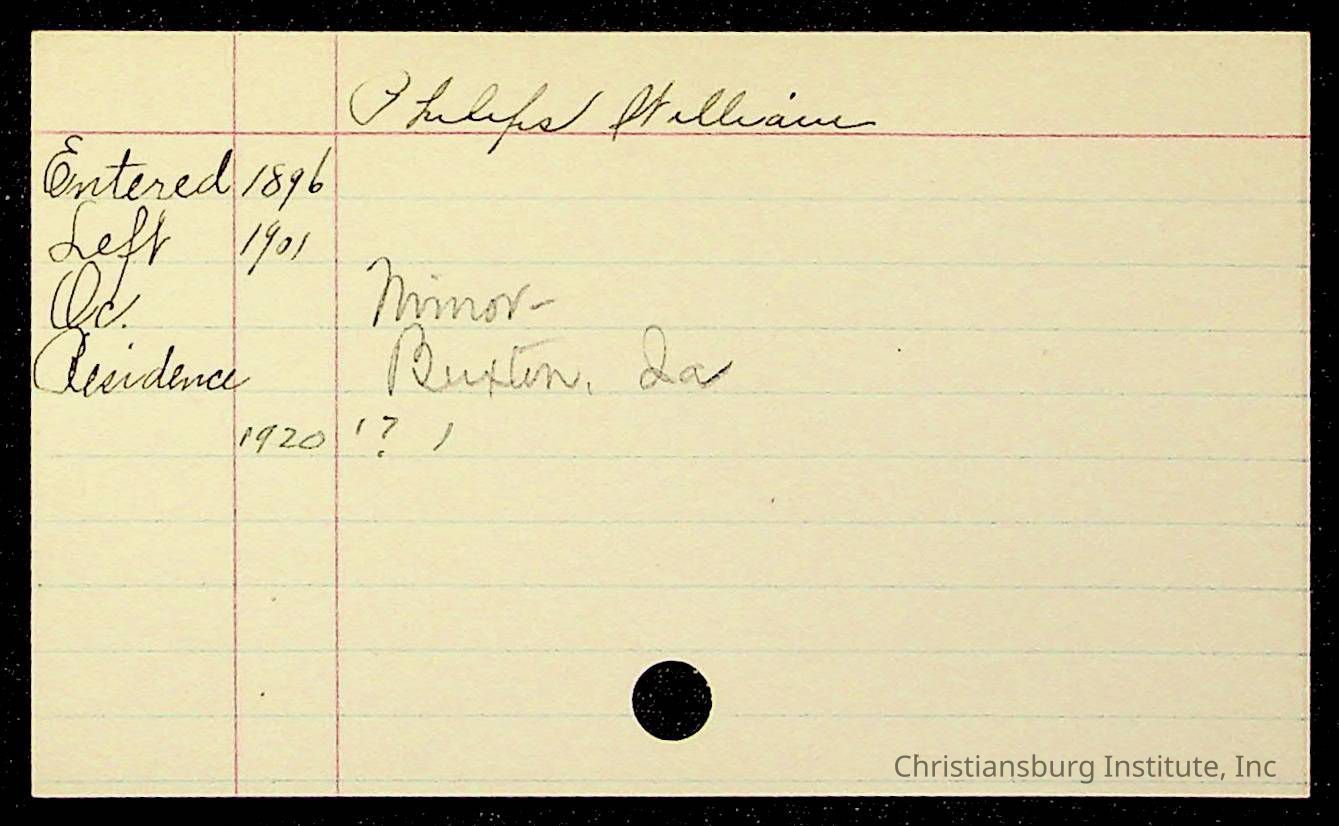 Philips William
Entered 1896
Left 1901
Oc. Minor-
Residence Buxton, Ia
1920 ( ? )
Christiansburg Institute, Inc